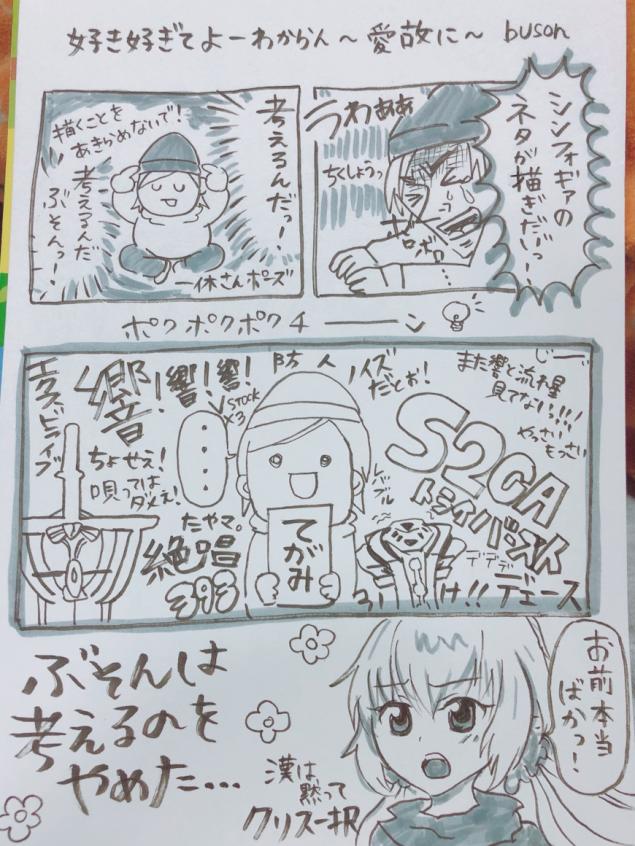 好き好きてよーわからん〜愛故に〜 buson
シンフォギアの
ネタが描ぎだいっ!
うわぁああ
ちくしょうっ
ボロボロ
考えるんだっー!
描くことを
あきらめないで!
考えるんだ
ぶそんっー!
一休さんポーズ
ポク ポク ポク チーーン
じー…
また響と流れ星
見てない!!!
やっさい
もっさい
S2CA
トライバースト
デデデ
デース
ノイズ
だとぉ!
防人
STOCK
×3
・・・・
てがみ
響!響!響!
エクスドライブ
ちょせえ!
唄っては
ダメぇ!
たやマ。
絶唱
393
け!!
お前本当
ばかっ!
ぶそんは
考えるのを
やめた…
漢は
黙って
クリス一択